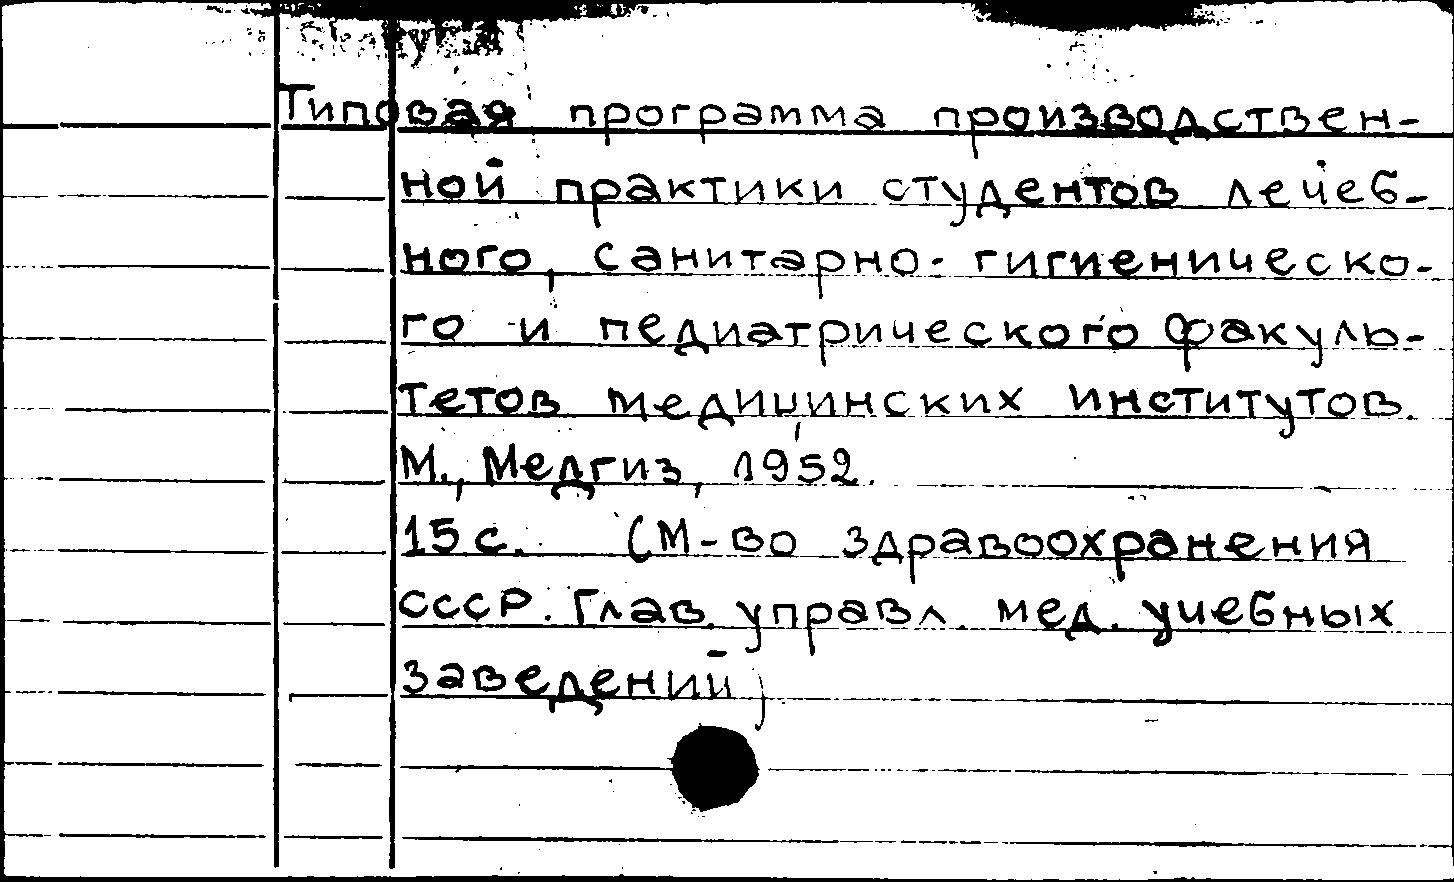 Типовая программа производствен-
ной практики студентов лечеб-
ного, санитарно-гигиеническо-
го и педиатрического факуль-
тетов медицинских институтов.
М., Медгиз, 1952.
15 с. (М-во здравоохранения
СССР. Глав. управл. мед. учебных
заведений)